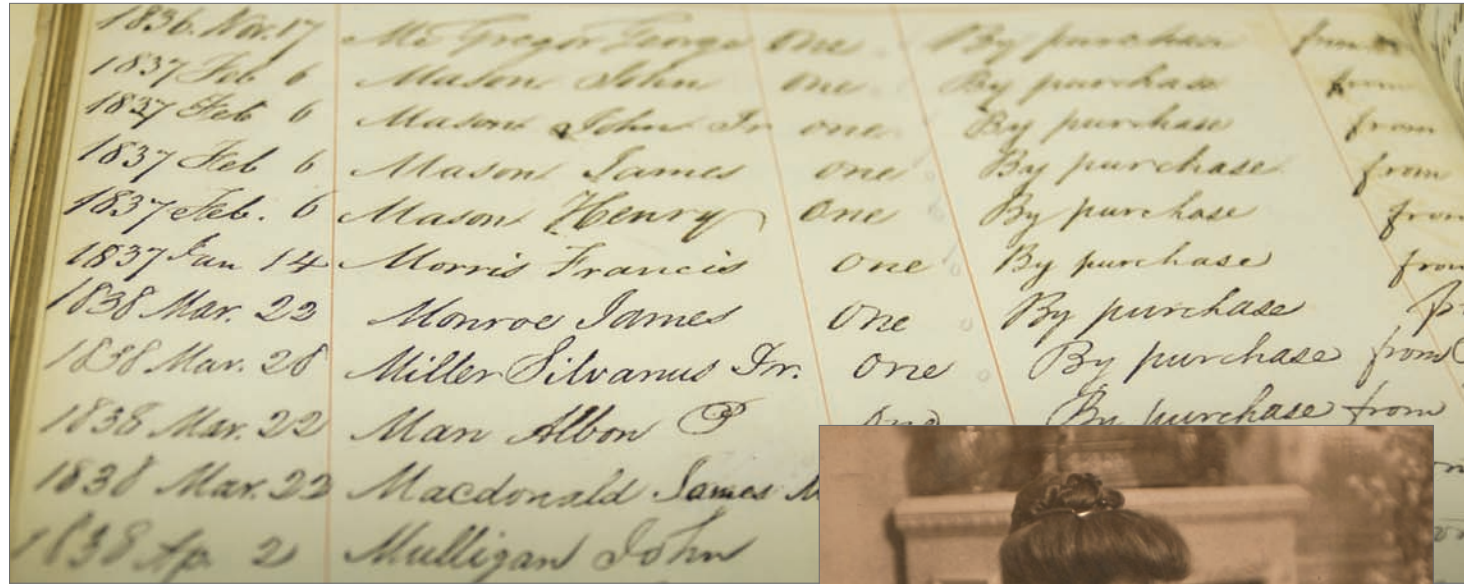 1836. Nov. 17 Mc Gregor George One By purchase from
1837 Feb 6 Mason John One By purchase from
1837 Feb 6 Mason John Jr One By purchase from
1837 Feb 6 Mason James One By purchase from
1837 Feb. 6 Mason Henry One By purchase from
1837 Jun 14 Morris Francis One By purchase from
1838 Mar. 22 Monroe James One By purchase
1838 Mar. 28 Miller Silvanus Jr. One By purchase from
1838 Mar. 22 Man Albon P One By purchase from
1838 Mar. 22 Macdonald James
1838 Ap. 2 Mulligan John